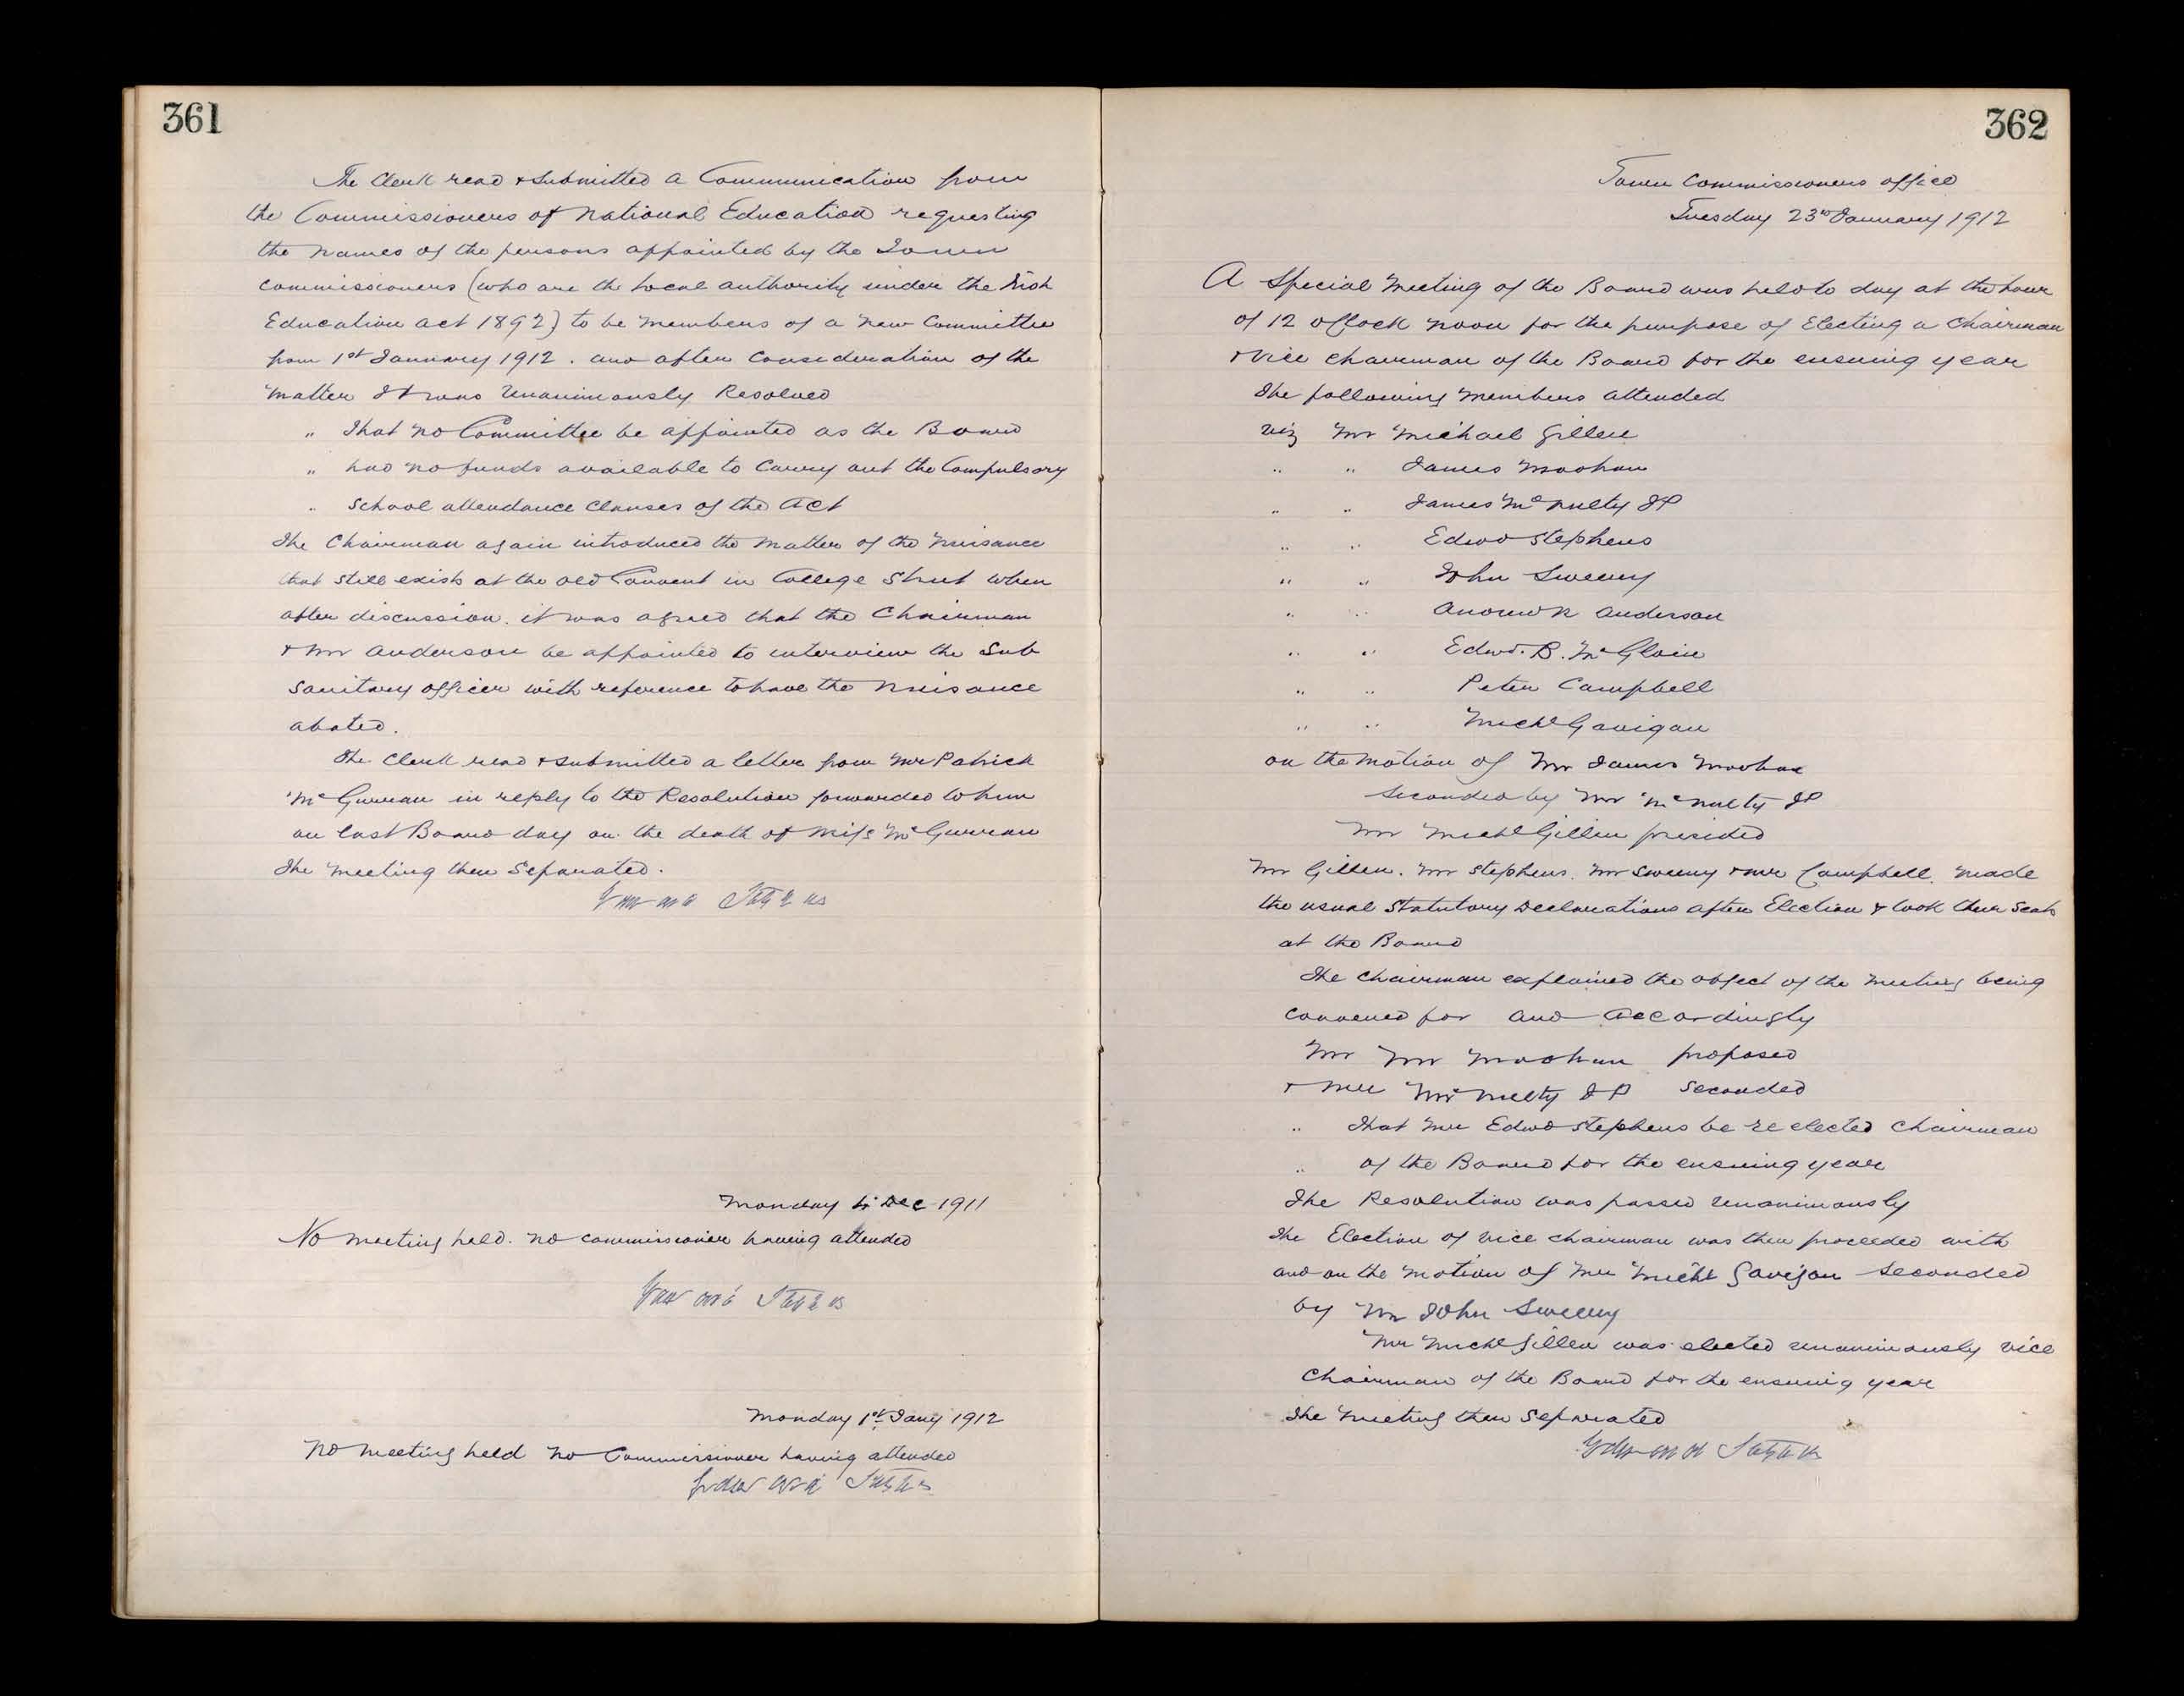 361
The Clerk read & submitted a Communication from
the Commissioners of National Education requesting
the names of the persons appointed by the Town
Commissioners (who are the Local authority under the Irish
Education act 1892) to be members of a new Committee
from 1st January 1912. and after Consideration of the
matter It was Unanimously Resolved
„ That no Committee be appointed as the Board
„ had no funds available to Carry out the Compulsory
„ School attendance Clauses of the Act
The Chairman again introduced the matter of the nuisance
that still exists at the old Convent in College Street when
after discussion. it was agreed that the Chairman
& Mr Anderson be appointed to interview the Sub
Sanitary officer with reference to have the nuisance
abated.
The Clerk read & submitted a letter from Mr Patrick
McGurran in reply to the Resolution forwarded to him
on last Board day on the death of Miss McGurran
The Meeting then Separated.
Edward Stephens
Monday Dec 1911
No meeting held. no commissioner having attended
Edward Stephens
Monday 1st Jany 1912
No meeting held no Commissioner having attended
Edward Stephens
362
Town Commissioners office
Tuesday 23rd January 1912
A Special Meeting of the Board was held to day at the hour
of 12 oClock noon for the purpose of Electing a Chairman
& Vice Chairman of the Board for the ensuing year
The following members attended
viz Mr Michael Gillen
„ „ James Moohan
„ „ James McNulty JP
„ „ Edwd Stephens
„ „ John Sweeny
„ „ Andrew R Anderson
„ „ Edwd. B. McGloin
„ „ Peter Campbell
„ „ Michl Gavigan
on the motion of Mr James Moohan
Seconded by Mr McNulty JP
Mr Michl Gillen presided
Mr Gillen. Mr Stephens. Mr Sweeny & Mr Campbell. made
the usual Statutory Declarations after Election & took their Seats
at the Board
The Chairman explained the object of the meeting being
convened for and accordingly
Mr Mr Moohan proposed
& Mr McNulty JP Seconded
„ That Mr Edwd Stephens be re elected Chairman
„ of the Board for the ensuing year
The Resolution was passed unanimously
The Election of vice chairman was then proceeded with
and on the motion of Mr Michl Gavigan Seconded
by Mr John Sweeny
Mr Michl Gillen was elected unanimously vice
Chairman of the Board for the ensuing year
The meeting then Separated
Edward Stephens